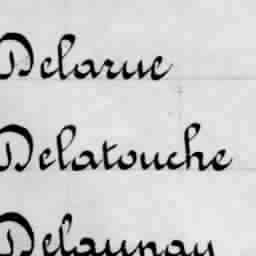 Delarue
Delatouche
Delaunay